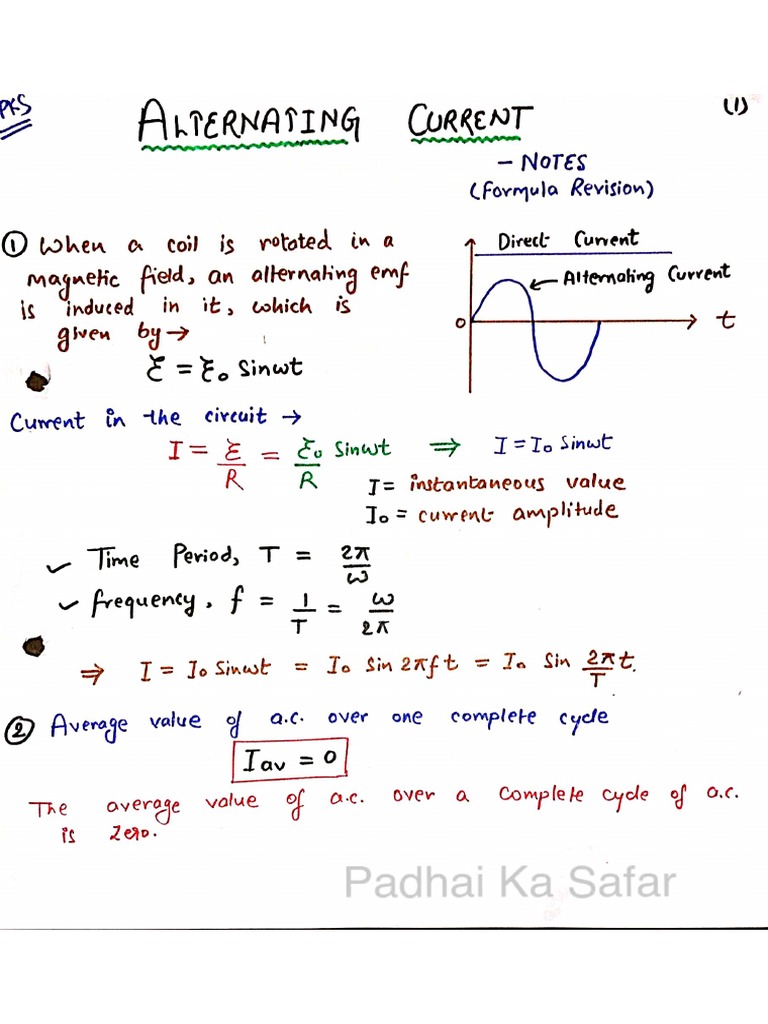 PKS
ALTERNATING CURRENT
(1)
- NOTES
(Formula Revision)
① When a coil is rotated in a
magnetic field, an alternating emf
is induced in it, which is
given by →
ξ = ξ₀ Sinωt
Direct Current
← Alternating Current
0
t
Current in the circuit →
I = ξ/R = ξ₀/R Sinωt ⇒ I = I₀ Sinωt
I = instantaneous value
I₀ = current amplitude
✓ Time Period, T = 2π/ω
✓ frequency, f = 1/T = ω/2π
⇒ I = I₀ Sinωt = I₀ Sin 2πft = I₀ Sin 2π/T t.
② Average value of a.c. over one complete cycle
Iav = 0
The average value of a.c. over a complete cycle of a.c.
is zero.
Padhai Ka Safar